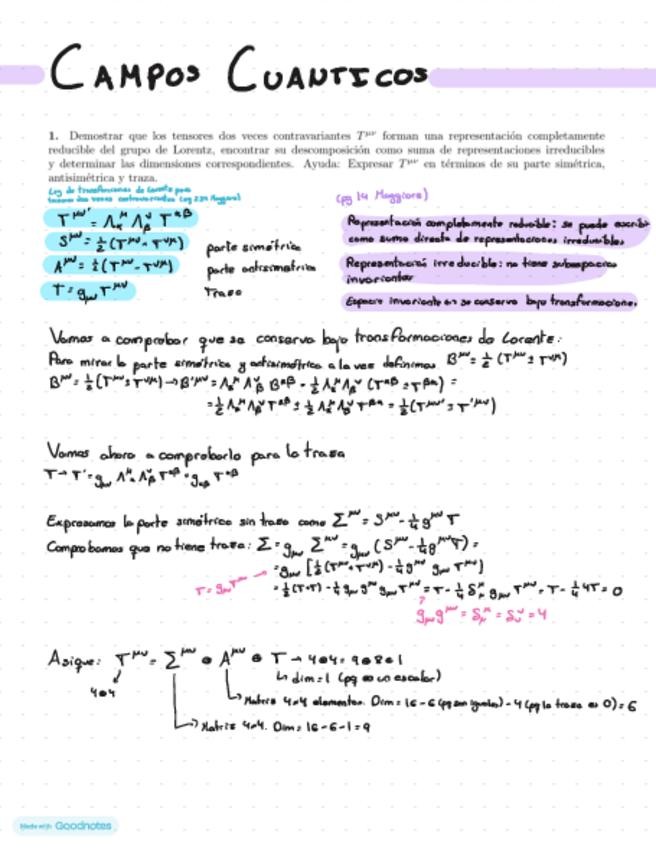 CAMPOS CUANTICOS
1. Demostrar que los tensores dos veces contravariantes T^{μν} forman una representación completamente
reducible del grupo de Lorentz, encontrar su descomposición como suma de representaciones irreducibles
y determinar las dimensiones correspondientes. Ayuda: Expresar T^{μν} en términos de su parte simétrica,
antisimétrica y traza.
Ley de transformaciones de Lorentz para
tensores dos veces contravariantes (pg 239 Maggiore)
(pg 19 Maggiore)
T^{μν'} = Λ^μ_α Λ^ν_β T^{αβ}
S^{μν} = ½ (T^{μν} + T^{νμ}) parte simétrica
A^{μν} = ½ (T^{μν} - T^{νμ}) parte antisimetrica
T = g_{μν} T^{μν} Traza
Representación completamente reducible: se puede escribir
como suma directa de representaciones irreducibles
Representación irreducible: no tiene subespacios
invariantes
Espacio invariante es se conserva bajo transformaciones.
Vamos a comprobar que se conserva bajo transformaciones de Lorentz:
Para mirar la parte simétrica y antisimétrica a la vez definimos B^{μν} = ½ (T^{μν} ± T^{νμ})
B^{μν} = ½ (T^{μν} ± T^{νμ}) → B'^{μν} = Λ^μ_α Λ^ν_β B^{αβ} = ½ Λ^μ_α Λ^ν_β (T^{αβ} ± T^{βα}) =
= ½ Λ^μ_α Λ^ν_β T^{αβ} ± ½ Λ^μ_α Λ^ν_β T^{βα} = ½ (T^{μν'} ± T'^{νμ})
Vamos ahora a comprobarlo para la traza
T → T' = g_{μν} Λ^μ_α Λ^ν_β T^{αβ} = g_{αβ} T^{αβ}
Expresamos la parte simétrica sin traza como Σ^{μν} = S^{μν} - ¼ g^{μν} T
Comprobamos que no tiene traza: Σ = g_{μν} Σ^{μν} = g_{μν} (S^{μν} - ¼ g^{μν} T) =
= g_{μν} [½ (T^{μν} + T^{νμ}) - ¼ g^{μν} g_{μν} T^{μν}]
T = g_{μν} T^{μν}
= ½ (T+T) - ¼ g_{μν} g^{μν} g_{μν} T^{μν} = T - ¼ δ^μ_μ g_{μν} T^{μν} = T - ¼ 4T = 0
g_{μν} g^{μν} = δ^μ_μ = δ^ν_ν = 4
Asique: T^{μν} = Σ^{μν} ⊕ A^{μν} ⊕ T → 4⊗4 = 9⊕8⊕1
4⊗4
dim = 1 (pq es un escalar)
Matriz 4×4 elementos. Dim = 16 - 6 (pq son iguales) - 4 (pq la traza es 0) = 6
Matriz 4×4. Dim = 16 - 6 - 1 = 9
Made with Goodnotes